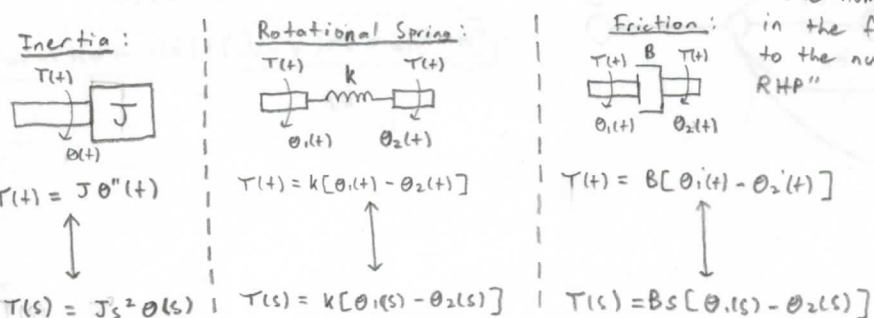 Inertia:
T(t)
J
θ(t)
T(t) = Jθ''(t)
T(s) = Js²θ(s)
Rotational Spring:
T(t) T(t)
k
θ₁(t) θ₂(t)
T(t) = k[θ₁(t) - θ₂(t)]
T(s) = k[θ₁(s) - θ₂(s)]
Friction:
T(t) B T(t)
θ₁(t) θ₂(t)
T(t) = B[θ₁'(t) - θ₂'(t)]
T(s) = Bs[θ₁(s) - θ₂(s)]
in the
to the
RHP"